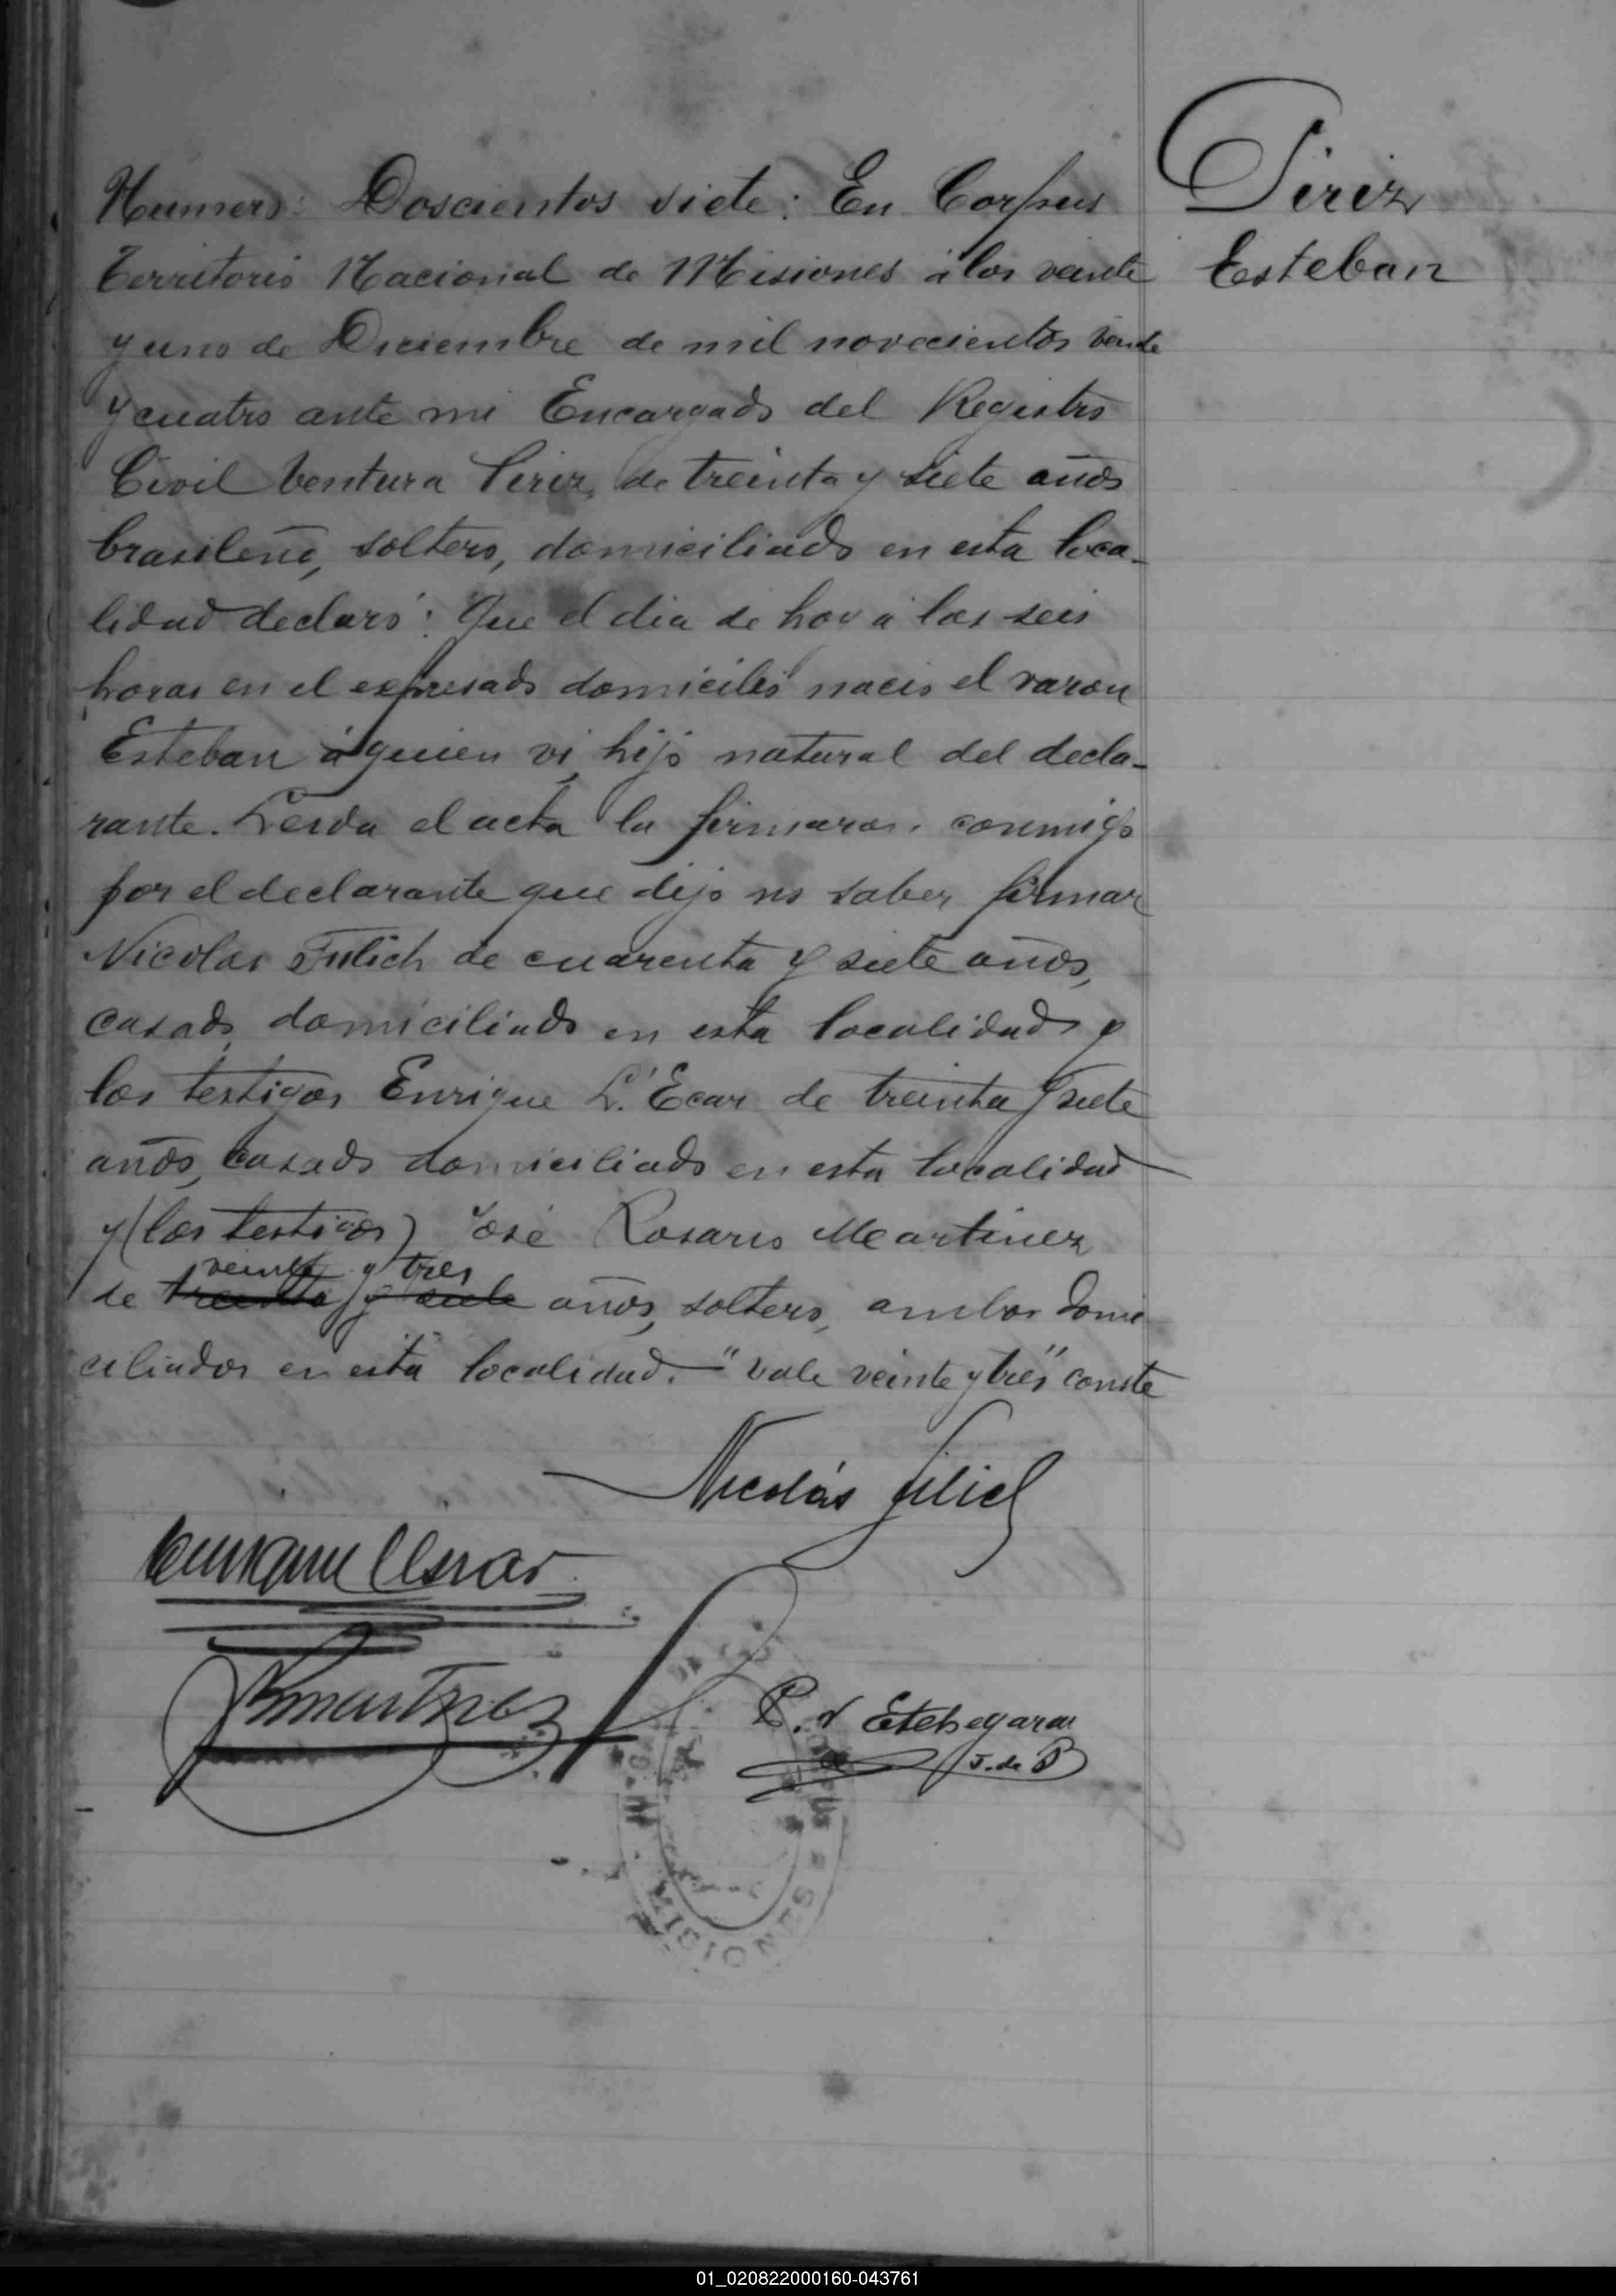 Numero: Doscientos siete: En Corpus
Territorio Nacional de Misiones á los veinte
y uno de Diciembre de mil novecientos veinte
y cuatro ante mi Encargado del Registro
Civil Ventura Piriz, de treinta y siete años
brasileño, soltero, domiciliado en esta loca-
lidad declaró: Que el dia de hoy a las seis
horas en el expresado domicilio nacio el varon
Esteban á quien vi, hijo natural del decla-
rante. Leida el acta la firmaron conmigo
por el declarante que dijo no saber firmar
Nicolas Filich de cuarenta y siete años,
casado, domiciliado en esta localidad y
los testigos Enrique L'Ecar de treinta y siete
años, casado domiciliado en esta localidad
y (los testigos) José Rosario Martinez
veinte y tres
de treinta y siete años, soltero, ambos domi
ciliados en esta localidad.- "vale veinte y tres" conste
Piriz
Esteban
Nicolás Filich
JRMartinez
P. Etchegaray
J. de P
MISIONES
01_020822000160-043761